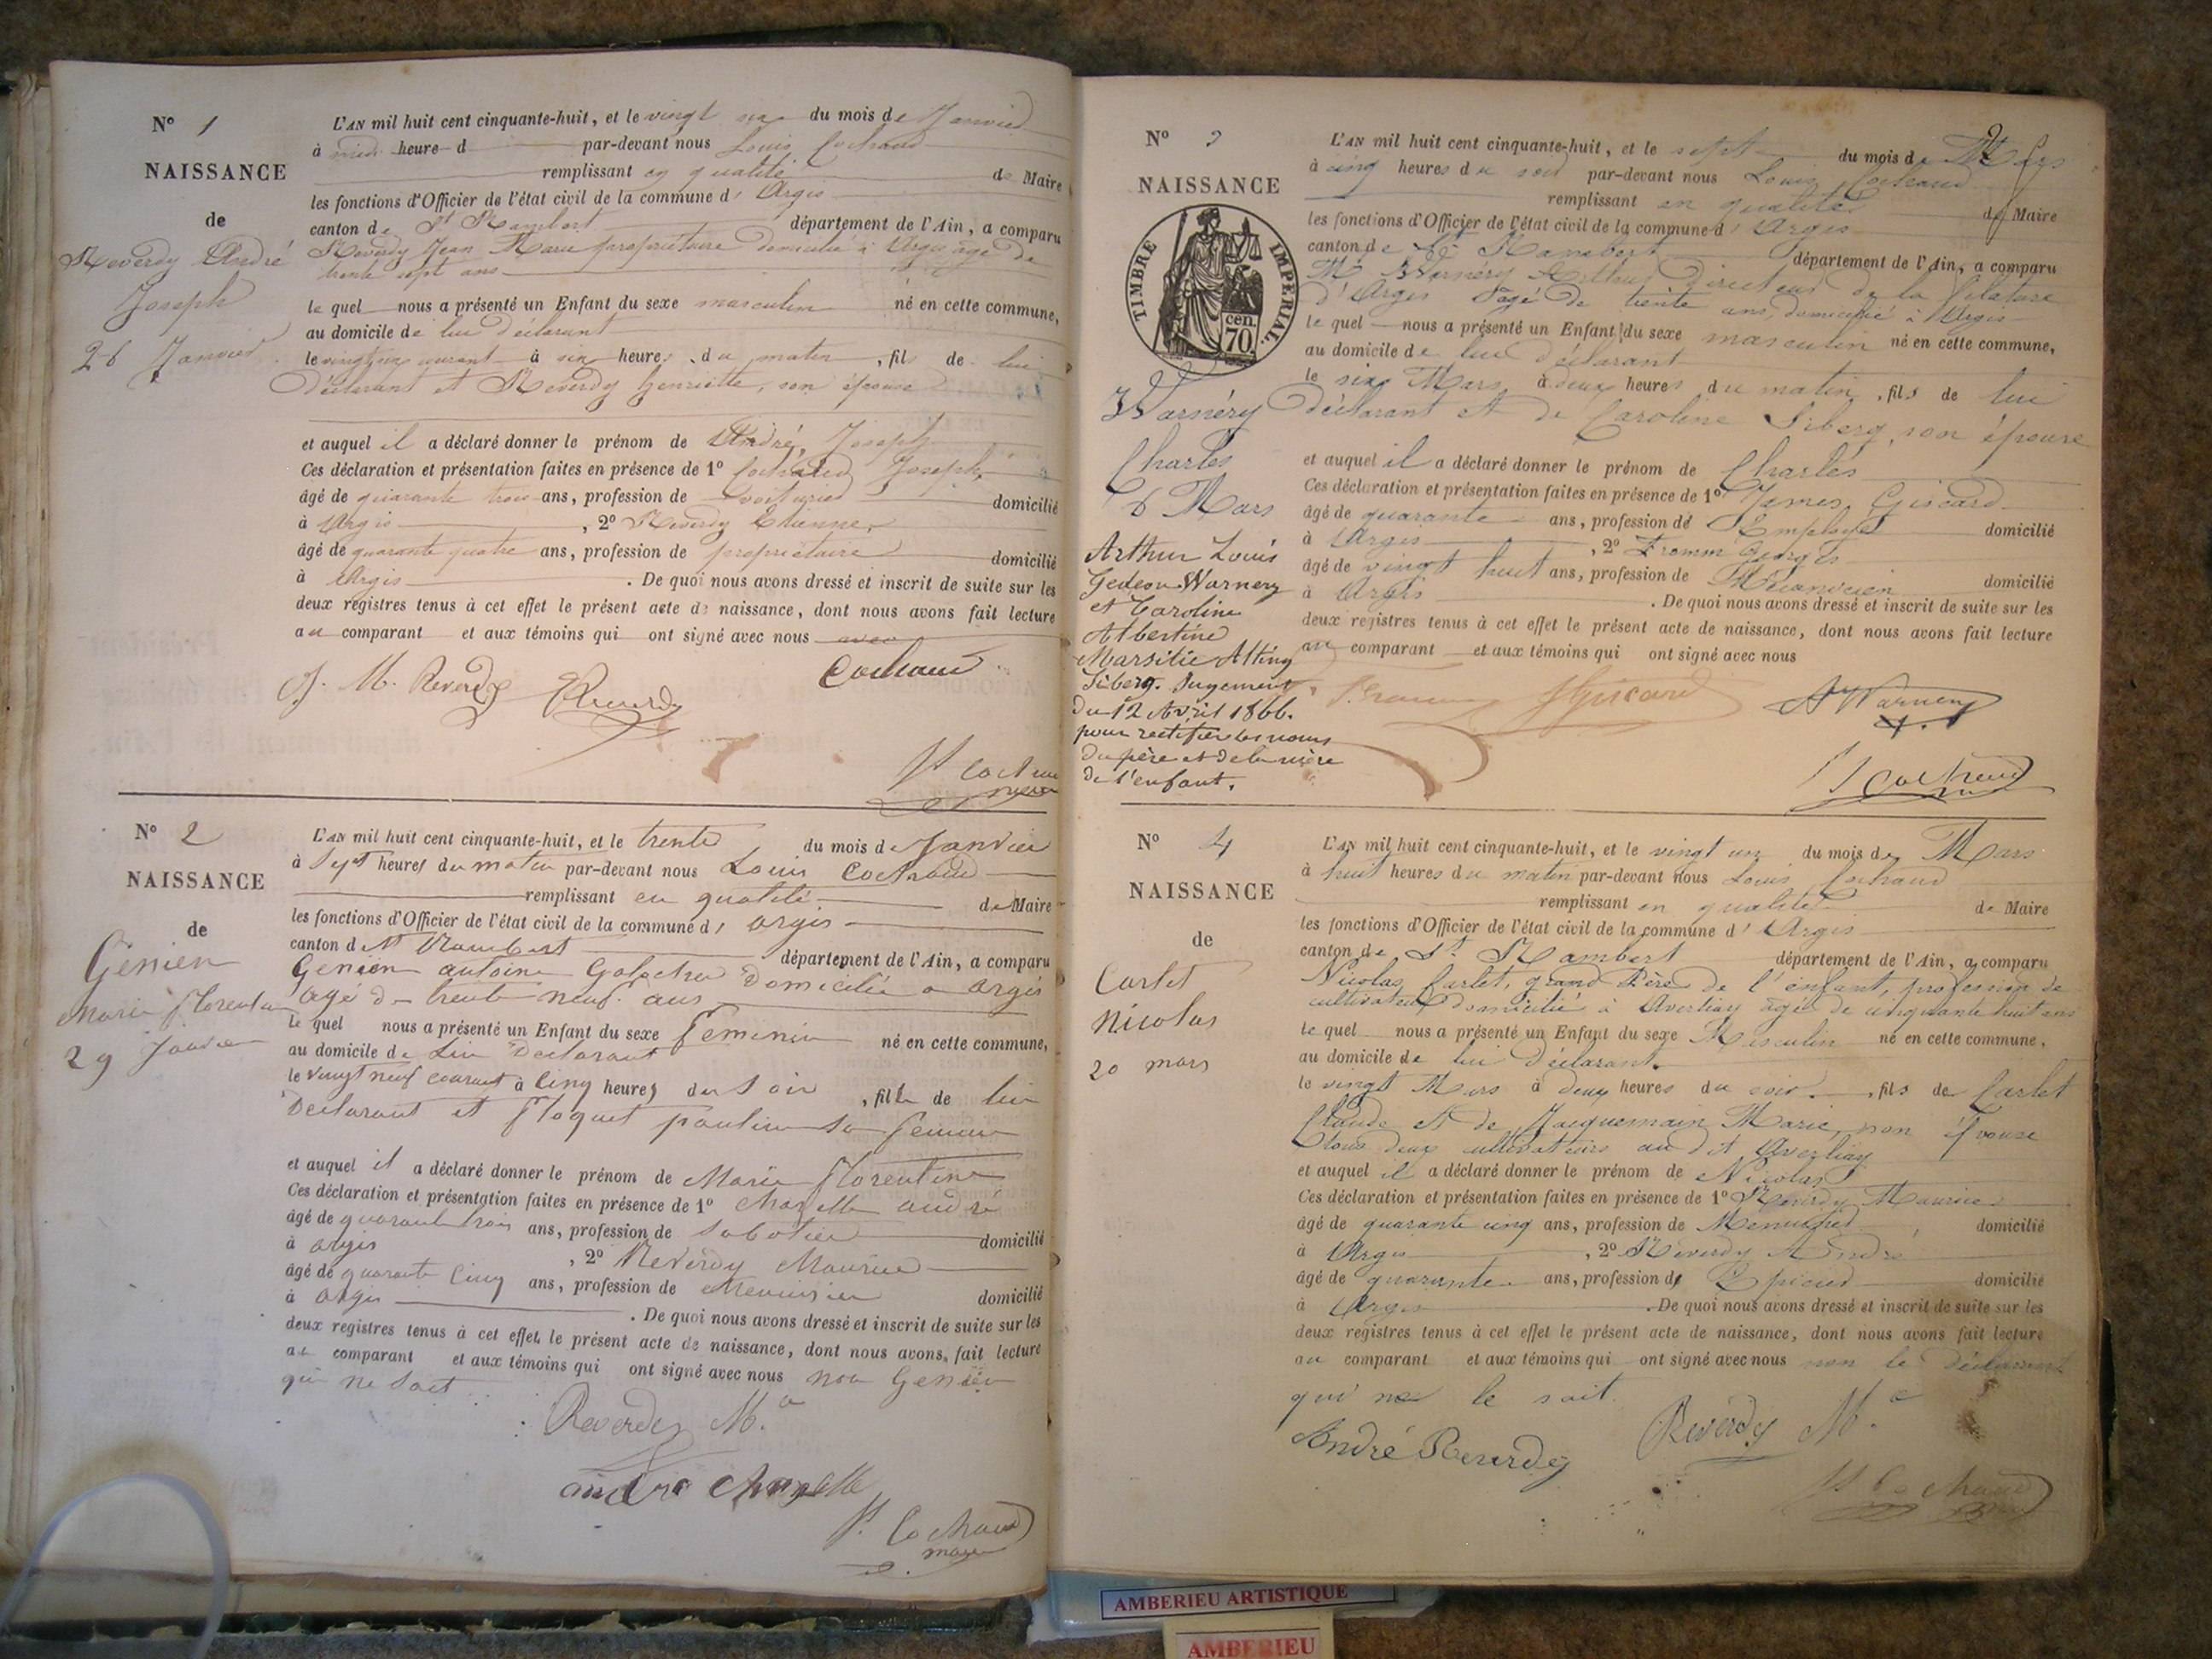 N° 1
NAISSANCE
de
Reverdy André
Joseph
26 Janvier
L'AN mil huit cent cinquante-huit, et le vingt six du mois de Janvier
à midi heure d par-devant nous Louis Cochaud
remplissant en qualité de Maire
les fonctions d'Officier de l'état civil de la commune d' Argis
canton de St Rambert département de l'Ain, a comparu
Reverdy Jean Marie propriétaire domicilié à Argis âgé de
trente sept ans
le quel nous a présenté un Enfant du sexe masculin né en cette commune,
au domicile de lui déclarant
le vingt six courant à six heures du matin, fils de lui
déclarant et Reverdy Henriette, son épouse
et auquel il a déclaré donner le prénom de André, Joseph
Ces déclaration et présentation faites en présence de 1° Cochaud Joseph,
âgé de quarante trois ans, profession de voiturier domicilié
à Argis, 2° Reverdy Etienne,
âgé de quarante quatre ans, profession de propriétaire domicilié
à Argis. De quoi nous avons dressé et inscrit de suite sur les
deux registres tenus à cet effet le présent acte de naissance, dont nous avons fait lecture
au comparant et aux témoins qui ont signé avec nous
J. M. Reverdy
Cochaud
Ls Cochaud
maire
N° 2
NAISSANCE
de
Génien
Marie Florentine
29 Janvier
L'AN mil huit cent cinquante-huit, et le trente du mois de Janvier
à sept heures du matin par-devant nous Louis Cochaud
remplissant en qualité de Maire
les fonctions d'Officier de l'état civil de la commune d' argis
canton de St Rambert département de l'Ain, a comparu
Genien antoine domicilié a argis
agé de trente neuf ans
le quel nous a présenté un Enfant du sexe feminin né en cette commune,
au domicile de lui Declarant
le vingt neuf courant à cinq heures du soir, fille de lui
Declarant et floquet pauline sa femme
et auquel il a déclaré donner le prénom de Marie florentine
Ces déclaration et présentation faites en présence de 1° Chapelle andré
âgé de quarante trois ans, profession de sabotier domicilié
à argis, 2° Reverdy Maurice
âgé de quarante cinq ans, profession de Menuisier domicilié
à argis. De quoi nous avons dressé et inscrit de suite sur les
deux registres tenus à cet effet le présent acte de naissance, dont nous avons fait lecture
au comparant et aux témoins qui ont signé avec nous non Genien
qui ne sait
Reverdy M.ce
andré chapelle
Ls Cochaud
maire
N° 3
NAISSANCE
TIMBRE IMPÉRIAL
70 cen.
Warnéry
Charles
6 Mars
Arthur Louis
Gedeon Warnery
et Caroline
Albertine
Marsitie Alting
Siberg. Jugement
du 12 Avril 1866.
pour rectifier les noms
du père et de la mère
de l'enfant.
2
L'AN mil huit cent cinquante-huit, et le sept du mois de Mars
à cinq heures du soir par-devant nous Louis Cochaud
remplissant en qualité de Maire
les fonctions d'Officier de l'état civil de la commune d' Argis
canton de St Rambert département de l'Ain, a comparu
Mr Warnéry Arthur Directeur de la filature
d'Argis âgé de trente ans, domicilié à Argis
le quel nous a présenté un Enfant du sexe masculin né en cette commune,
au domicile de lui déclarant
le six Mars, à deux heures du matin, fils de lui
déclarant et de Caroline Siberg, son épouse
et auquel il a déclaré donner le prénom de Charles
Ces déclaration et présentation faites en présence de 1° James Giscard
âgé de quarante ans, profession de Employé domicilié
à Argis, 2° Fromm Georges
âgé de vingt huit ans, profession de Mécanicien domicilié
à Argis. De quoi nous avons dressé et inscrit de suite sur les
deux registres tenus à cet effet le présent acte de naissance, dont nous avons fait lecture
au comparant et aux témoins qui ont signé avec nous
JGiscard
A Warnery
Ls Cochaud
N° 4
NAISSANCE
de
Carlet
Nicolas
20 mars
L'AN mil huit cent cinquante-huit, et le vingt un du mois de Mars
à huit heures du matin par-devant nous Louis Cochaud
remplissant en qualité de Maire
les fonctions d'Officier de l'état civil de la commune d' Argis
canton de St. Rambert département de l'Ain, a comparu
Nicolas Carlet, grand Père de l'enfant, profession de
cultivateur domicilié à Averliaz âgé de cinquante huit ans
le quel nous a présenté un Enfant du sexe Masculin né en cette commune,
au domicile de lui déclarant.
le vingt Mars à deux heures du soir, fils de Carlet
Claude et de Jacquemain Marie, son épouse
tous deux cultivateurs au dit Averliaz
et auquel il a déclaré donner le prénom de Nicolas
Ces déclaration et présentation faites en présence de 1° Reverdy Maurice
âgé de quarante cinq ans, profession de Menuisier domicilié
à Argis, 2° Reverdy André
âgé de quarante ans, profession de Epicier domicilié
à Argis. De quoi nous avons dressé et inscrit de suite sur les
deux registres tenus à cet effet le présent acte de naissance, dont nous avons fait lecture
au comparant et aux témoins qui ont signé avec nous non le déclarant
qui ne le sait.
André Reverdy
Reverdy M.ce
Ls Cochaud
AMBERIEU ARTISTIQUE
AMBERIEU